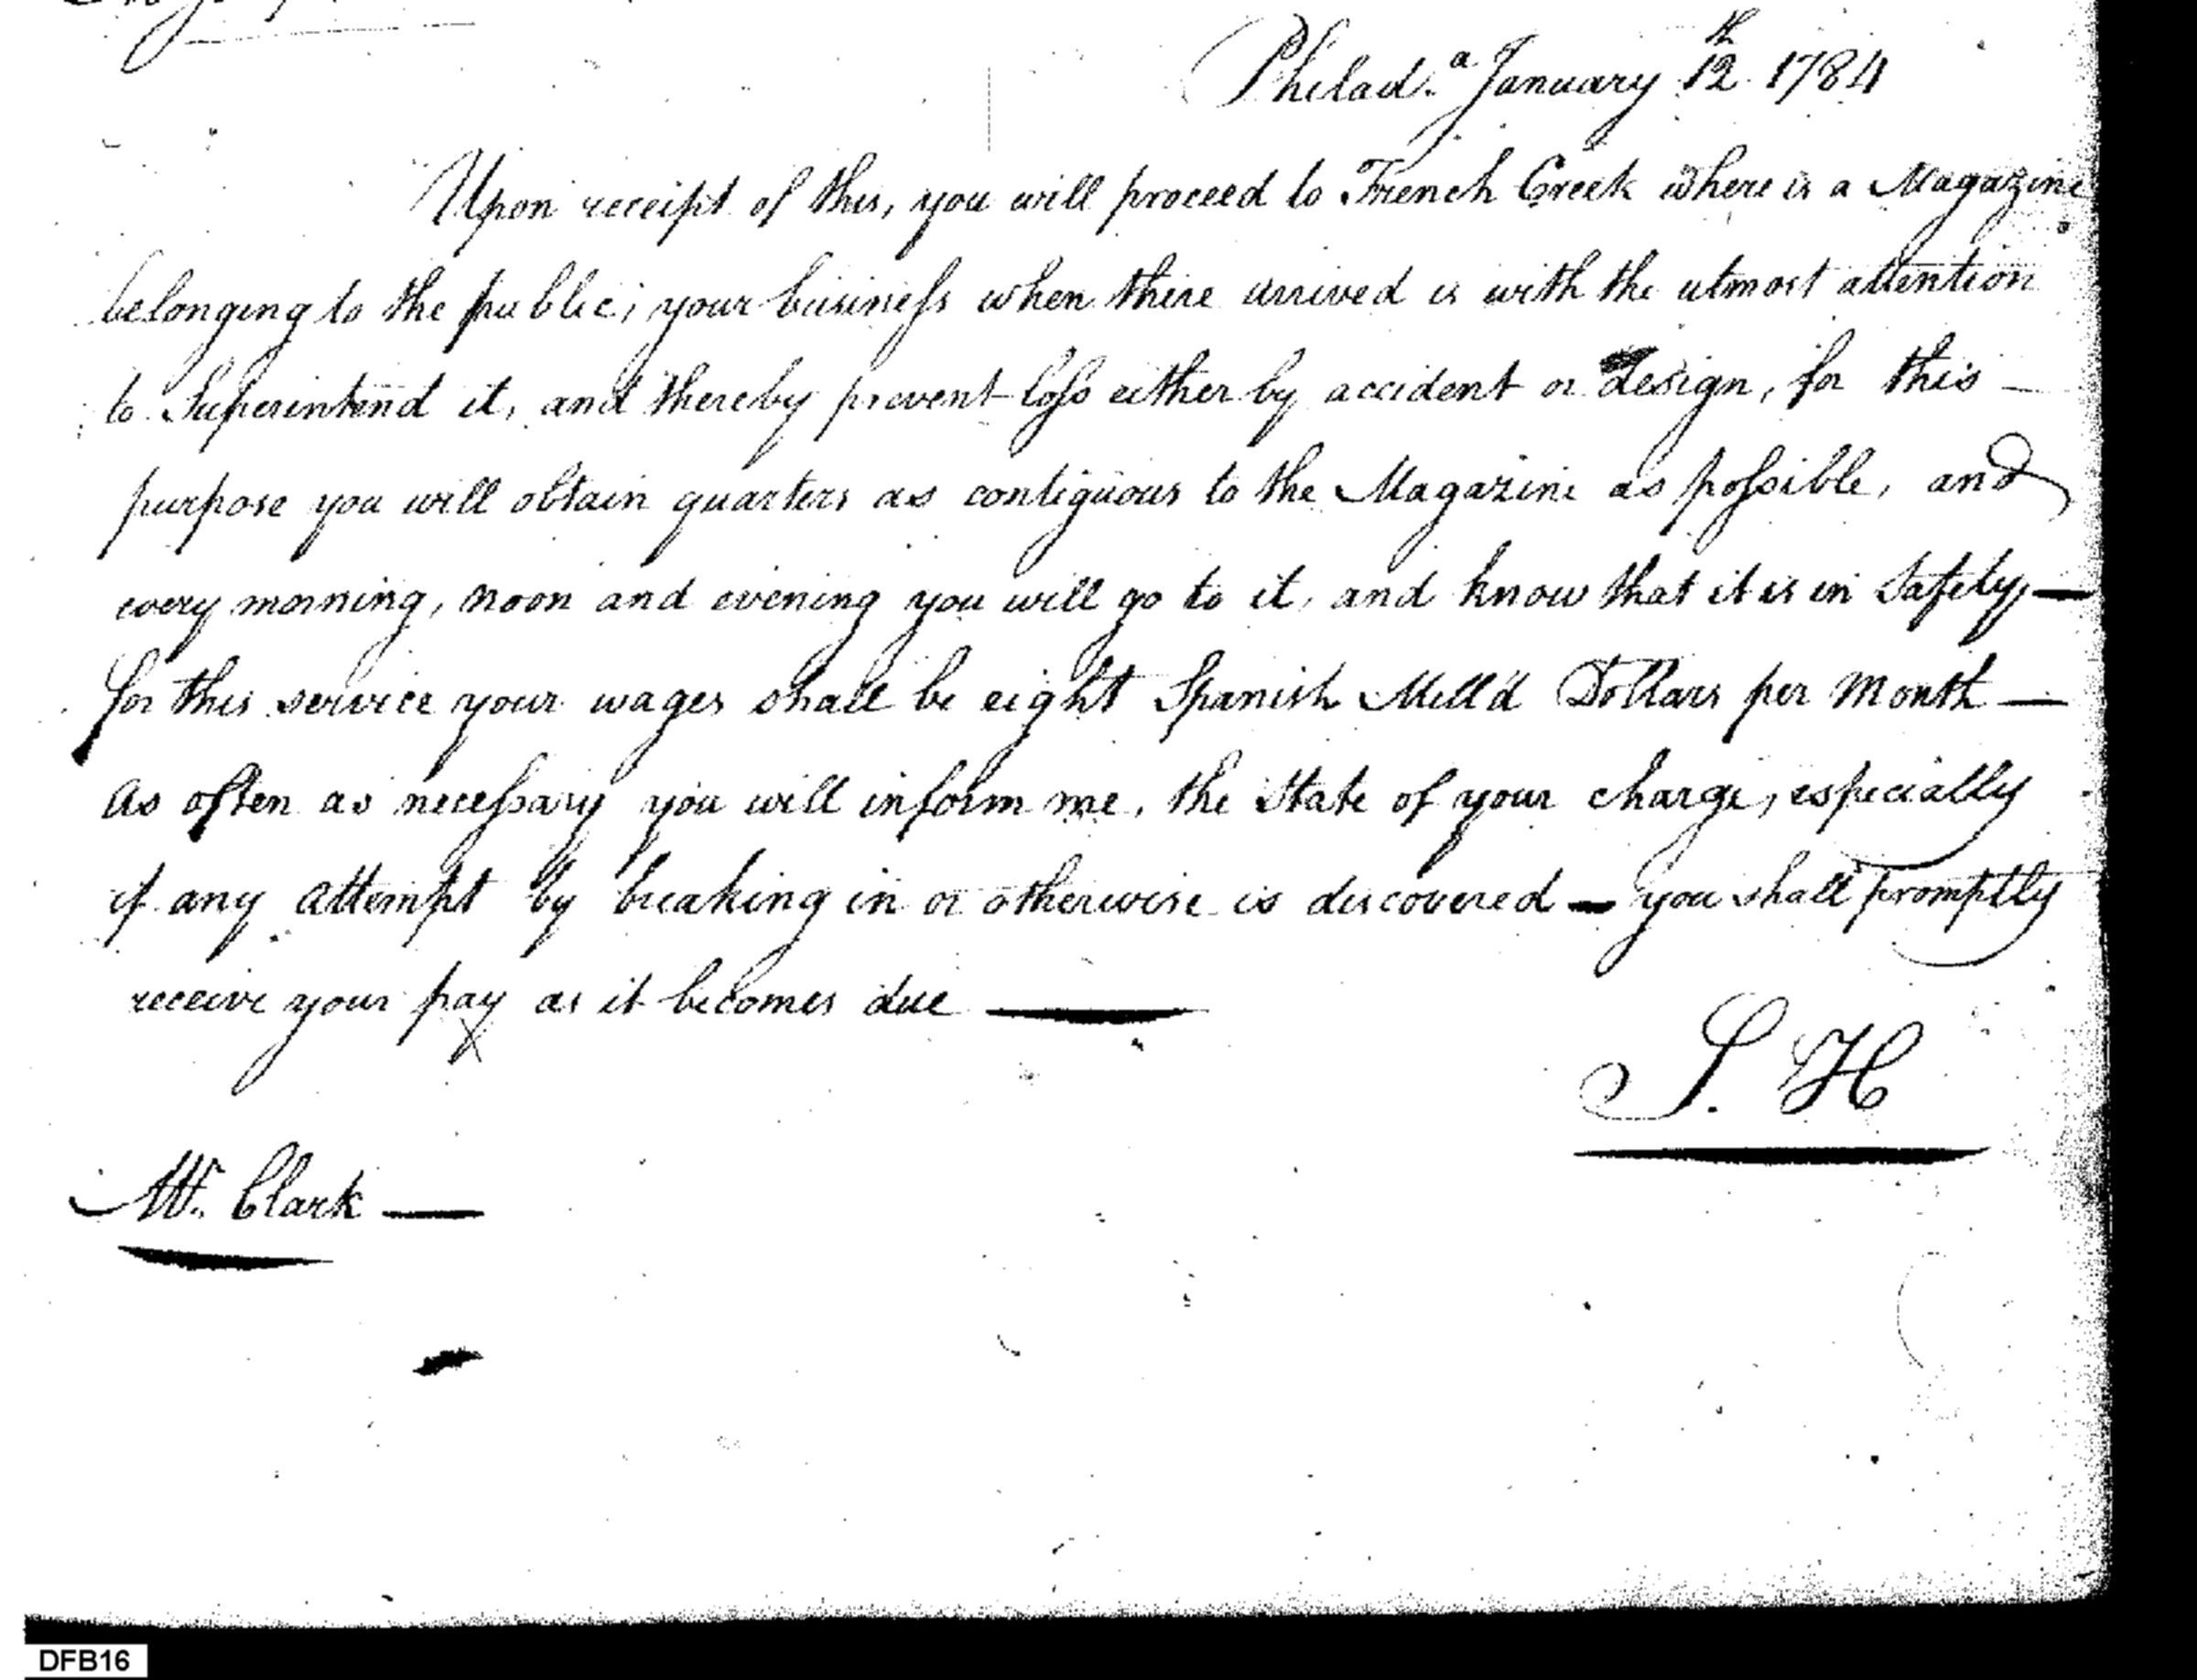 Philad.ª January 12th 1784
Upon receipt of this, you will proceed to French Creek where is a Magazine
belonging to the public; your business when there arrived is with the utmost attention
to Superintend it, and thereby prevent loss either by accident or design, for this —
purpose you will obtain quarters as contiguous to the Magazine as possible, and
every morning, noon and evening you will go to it, and know that it is in Safety, —
for this service your wages shall be eight Spanish Mill'd Dollars per Month —
as often as necessary you will inform me, the State of your charge, especially
if any attempt by breaking in or otherwise is discovered — you shall promptly
receive your pay as it becomes due —
S. H
Mr. Clark —
DFB16